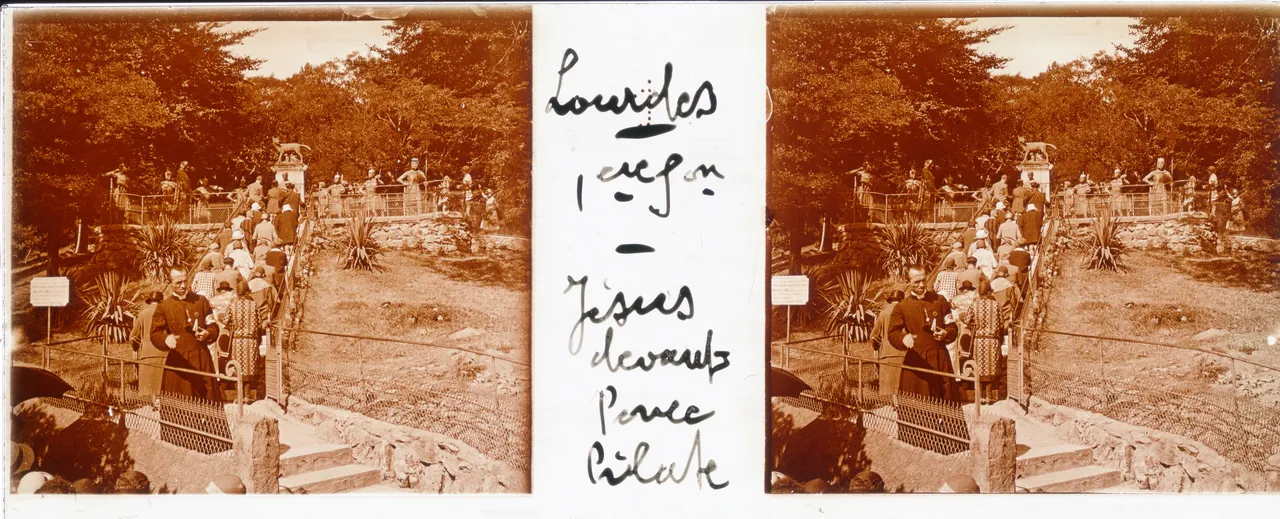 Lourdes
1ere Son
Jésus
devant
Ponce
Pilate